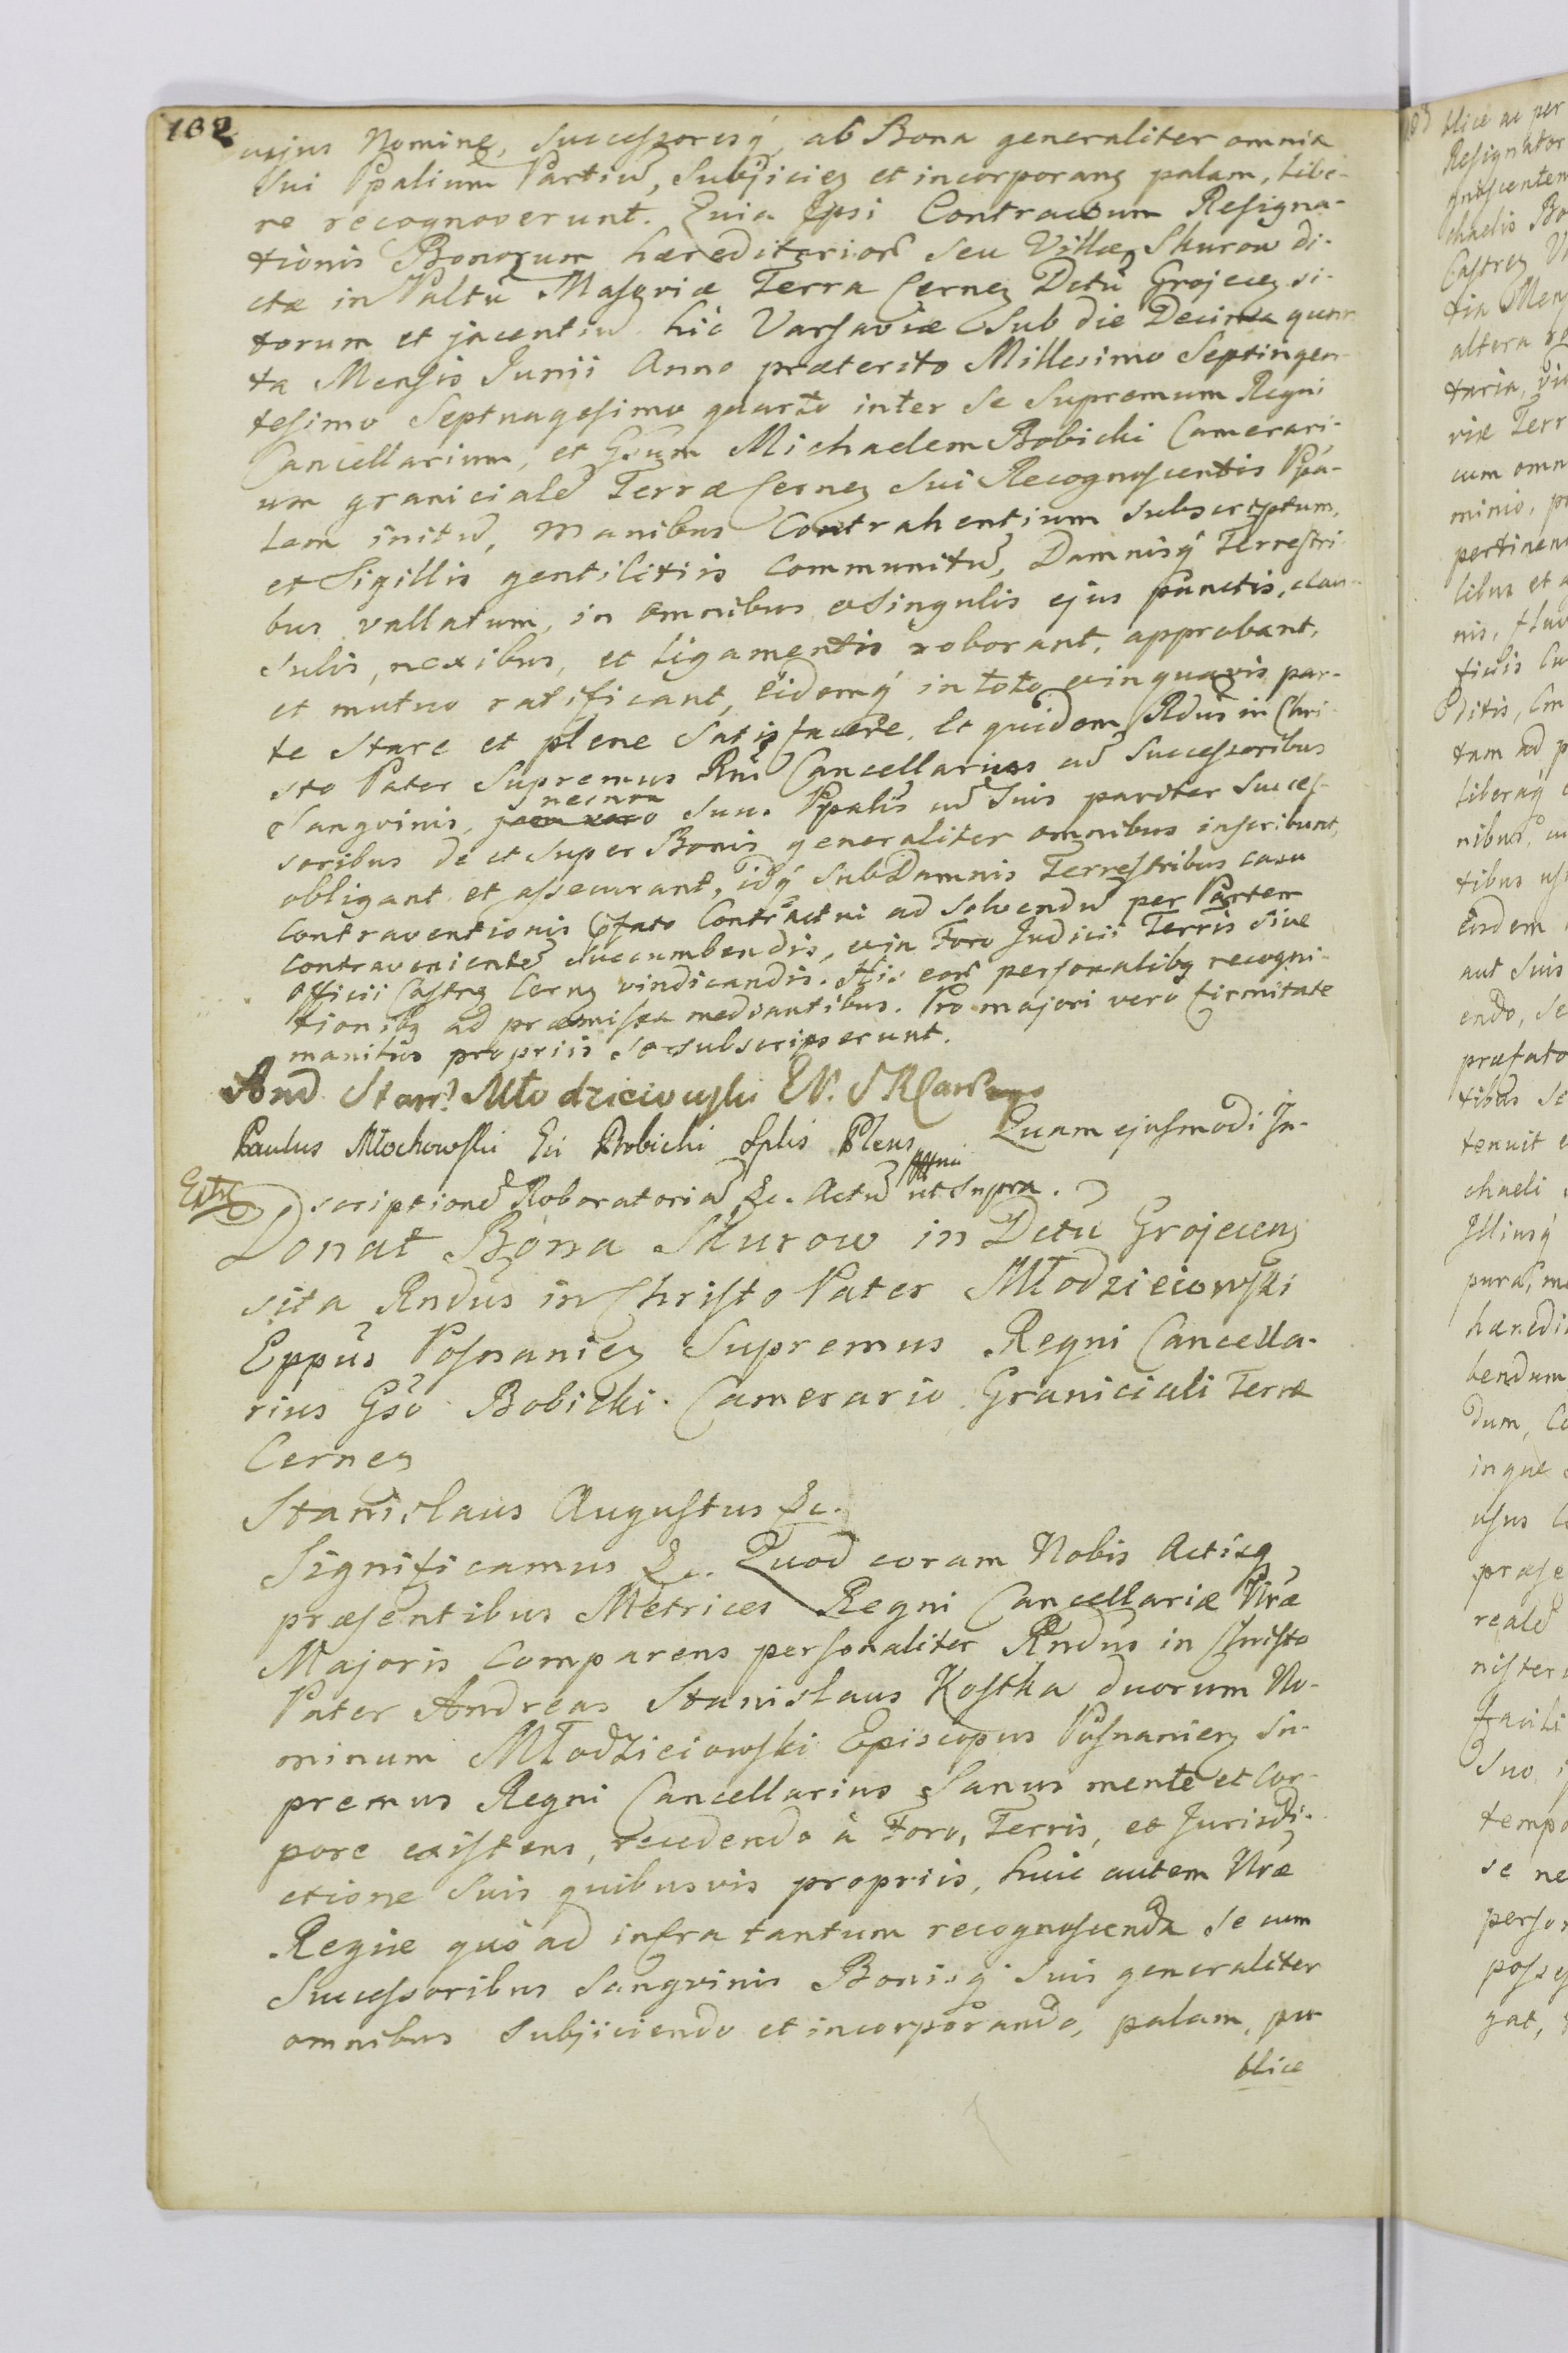 162
cujus Nomine, Successoresq́, ab Bona generaliter omnia
Sui Ppalium Partiu᷉, Subjiciez et incorporanz palam, libe-
re recognoverunt. Quia Ipsi Contractum Resigna-
tionis Bonorum hæreditarior᷉ seu Villæ Skurow di-
ctæ in Paltu᷉ Masoviæ Terra Cernez Dctu᷉ Grojecez si-
torum et jacentiu᷉ hic Varsaviæ Sub die Decima quar-
ta Mensis Junii Anno præterito Millesimo Septingen-
tesimo Septuagesimo quarto inter Se Supremum Regni
Cancellarium, et Gsum Michaelem Bobicki Camerari-
um graniciale᷉ Terræ Cernez Sui Recognoscentis Ppa-
lem initu᷉, manibus Contrahentium subscriptum,
et Sigillis gentilitiis Communitu᷉, Damnisq́ Terrestri-
bus vallatum, in omnibus et Singulis ejus punctis, clau-
sulis, nexibus, et ligamentis roborant, approbant,
et mutuo ratificant, eidemq́ in toto et in quavis par-
te Stare et plene Satisfacere. Et quidem Rdus in Chri-
sto Pater Supremus Rni Cancellarius cu᷉ Successoribus
necnon
Sangvinis, Suu. Ppalis cu᷉ Suis pariter Succes-
soribus de et Super Bonis generaliter omnibus inscribunt,
obligant et assecurant, idq́ Sub Damnis Terrestribus casu
Contraventionis Pfato Contractui ad Solvendu᷉ per Partem
contraveniente᷉ Succumbendis, et in Foro Judicii Terris sive
Officii Castrz Cernz vindicandis. His eor᷉ personalibq recogni-
tionibq ad præmissa mediantibus. Pro majori vero firmitate
manibus propriis se subscripserunt.
And. Stan. Młodzieiowski EP. S R Canc
Paulus Młochowski Gi Bobicki Splis Plens Quam ejusmodi In-
scriptione᷉ Roboratoria᷉ &c. Actu᷉ ut Supra.
Extr
Donat Bona Skurow in Dctu᷉ Grojecenz
sita Rndus in Christo Pater Młodzieiowski
Eppus Posnaniez Supremus Regni Cancella-
rius Gso Bobicki Camerario Graniciali Terræ
Cernez
Stanislaus Augustus &c.
Significamus &c. Quod coram Nobis Actisq
præsentibus Metrices Regni Cancellariæ Nræ
Majoris Comparens personaliter Rndus in Christo
Pater Andreas Stanislaus Kostka duorum No-
minum Młodzieiowski Episcopus Posnaniez Su-
premus Regni Cancellarius Sanus mente et Cor-
pore existens, recedendo à Foro, Terris, et Jurisdi-
ctione Suis quibusvis propriis, huic autem Nræ
Regiæ quò ad infra tantum recognoscenda Se cum
Successoribus Sangvinis Bonisq́ Suis generaliter
omnibus Subjiciendo et incorporando, palam, pu-
blice
blice ac per
Resignator
gnoscentem
chaelis Bo
Castrz
tia Mens
altera
taria,
viæ Terr
cum omn
minio, pr
pertinent
libus et
nis, fluv
ficiis
ditis,
tam ad p
liberaq́
nibus,
tibus
Eisdem
aut Suis
endo, Se
præfato
tibus Se
tenuit
chaeli
Illiusq́
pura,
hæredi
bendum
dum, Co
inque
usus
præse
reale᷉
nister
facili
Suo
tempo
se ne
person
posse
gat,